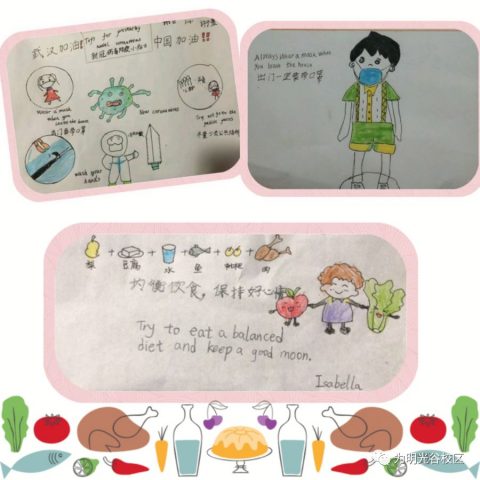 武汉加油!!
Tips for preventing
novel coronavirus
中国加油!!
Wear a mask
when you
leave the house
出门要带口罩
New coronavirus
Try not to go to the
public places
wash your
hands
Always Wear a mask when
You leave the house
出门一定要带口罩
梨 豆腐 水 鱼 枇杷 肉
均衡饮食，保持好心情
Try to eat a balanced
diet and keep a good moon.
Isabella
为明光谷校区